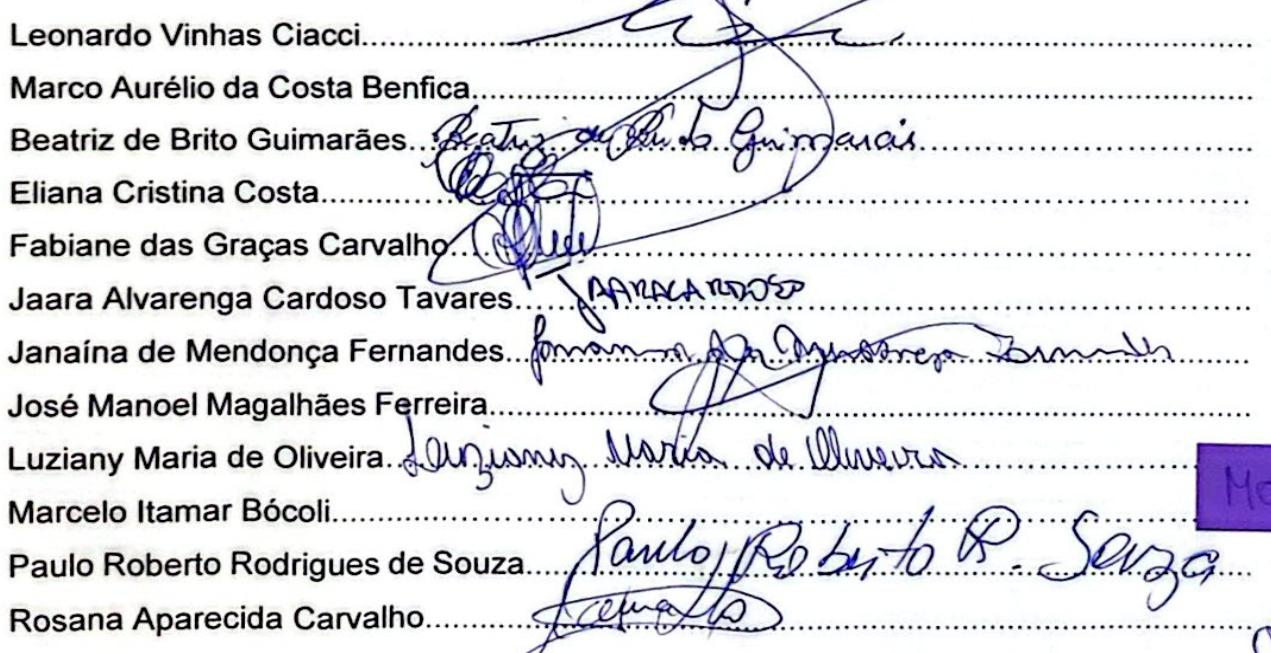 Leonardo Vinhas Ciacci
Marco Aurélio da Costa Benfica
Beatriz de Brito Guimarães Beatriz de Brito Guimarães
Eliana Cristina Costa
Fabiane das Graças Carvalho
Jaara Alvarenga Cardoso Tavares JAARA CARDOSO
Janaína de Mendonça Fernandes Janaina de Mendonça Fernandes
José Manoel Magalhães Ferreira
Luziany Maria de Oliveira Luziany Maria de Oliveira
Marcelo Itamar Bócoli
Paulo Roberto Rodrigues de Souza Paulo Roberto R. Souza
Rosana Aparecida Carvalho